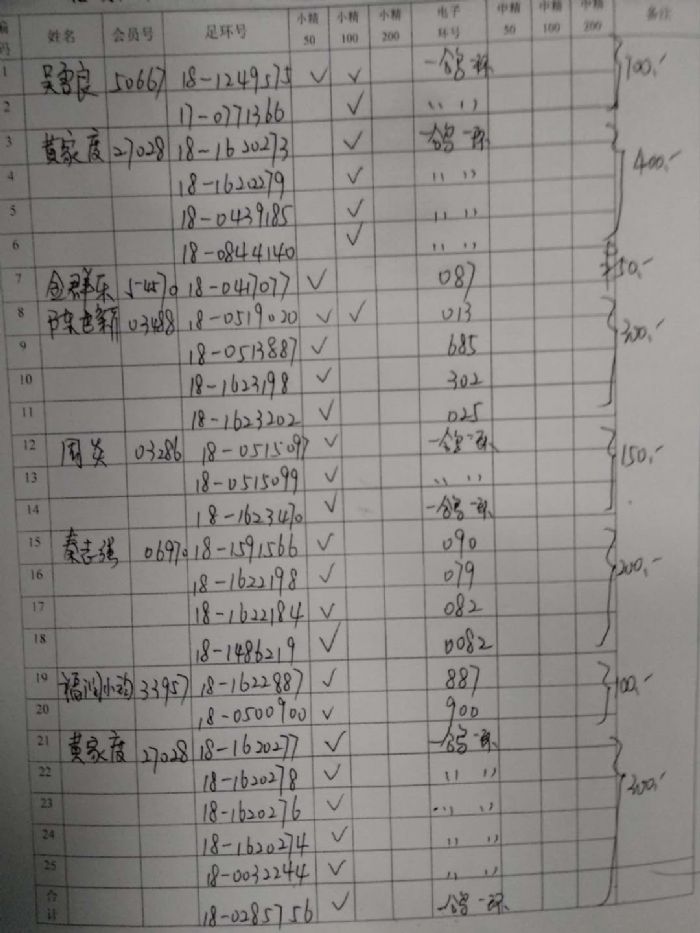 编码 姓名 会员号 足环号 小精50 小精100 小精200 电子环号 中精50 中精100 中精200 备注
1 吴富良 50667 18-1249575 ✓ ✓ 一鸽一环
2 17-0771366 ✓ 〃 〃 700,-
3 黄家度 27028 18-1620273 ✓ 一鸽一环
4 18-1620279 ✓ 〃 〃 400,-
5 18-0439185 ✓ 〃 〃
6 18-0844140 ✓ 〃 〃
7 金群乐 5-4470 18-0417077 ✓ 087 50,-
8 03488 18-0519020 ✓ ✓ 013
9 18-0513887 ✓ 685 300,-
10 18-1623198 ✓ 302
11 18-1623202 ✓ 025
12 周炎 03286 18-0515097 ✓ 一鸽一环
13 18-0515099 ✓ 〃 〃 150,-
14 18-1623470 ✓ 一鸽一环
15 秦志强 06970 18-1591566 ✓ 090
16 18-1622198 ✓ 079 200,-
17 18-1622184 ✓ 082
18 18-1486219 ✓ 0082
19 33957 18-1622887 ✓ 887 100,-
20 18-0500900 ✓ 900
21 黄家度 27028 18-1620277 ✓ 一鸽一环
22 18-1620278 ✓ 〃 〃 300,-
23 18-1620276 ✓ 〃 〃
24 18-1620274 ✓ 〃 〃
25 18-0032244 ✓ 〃 〃
合计 18-0285756 ✓ 一鸽一环